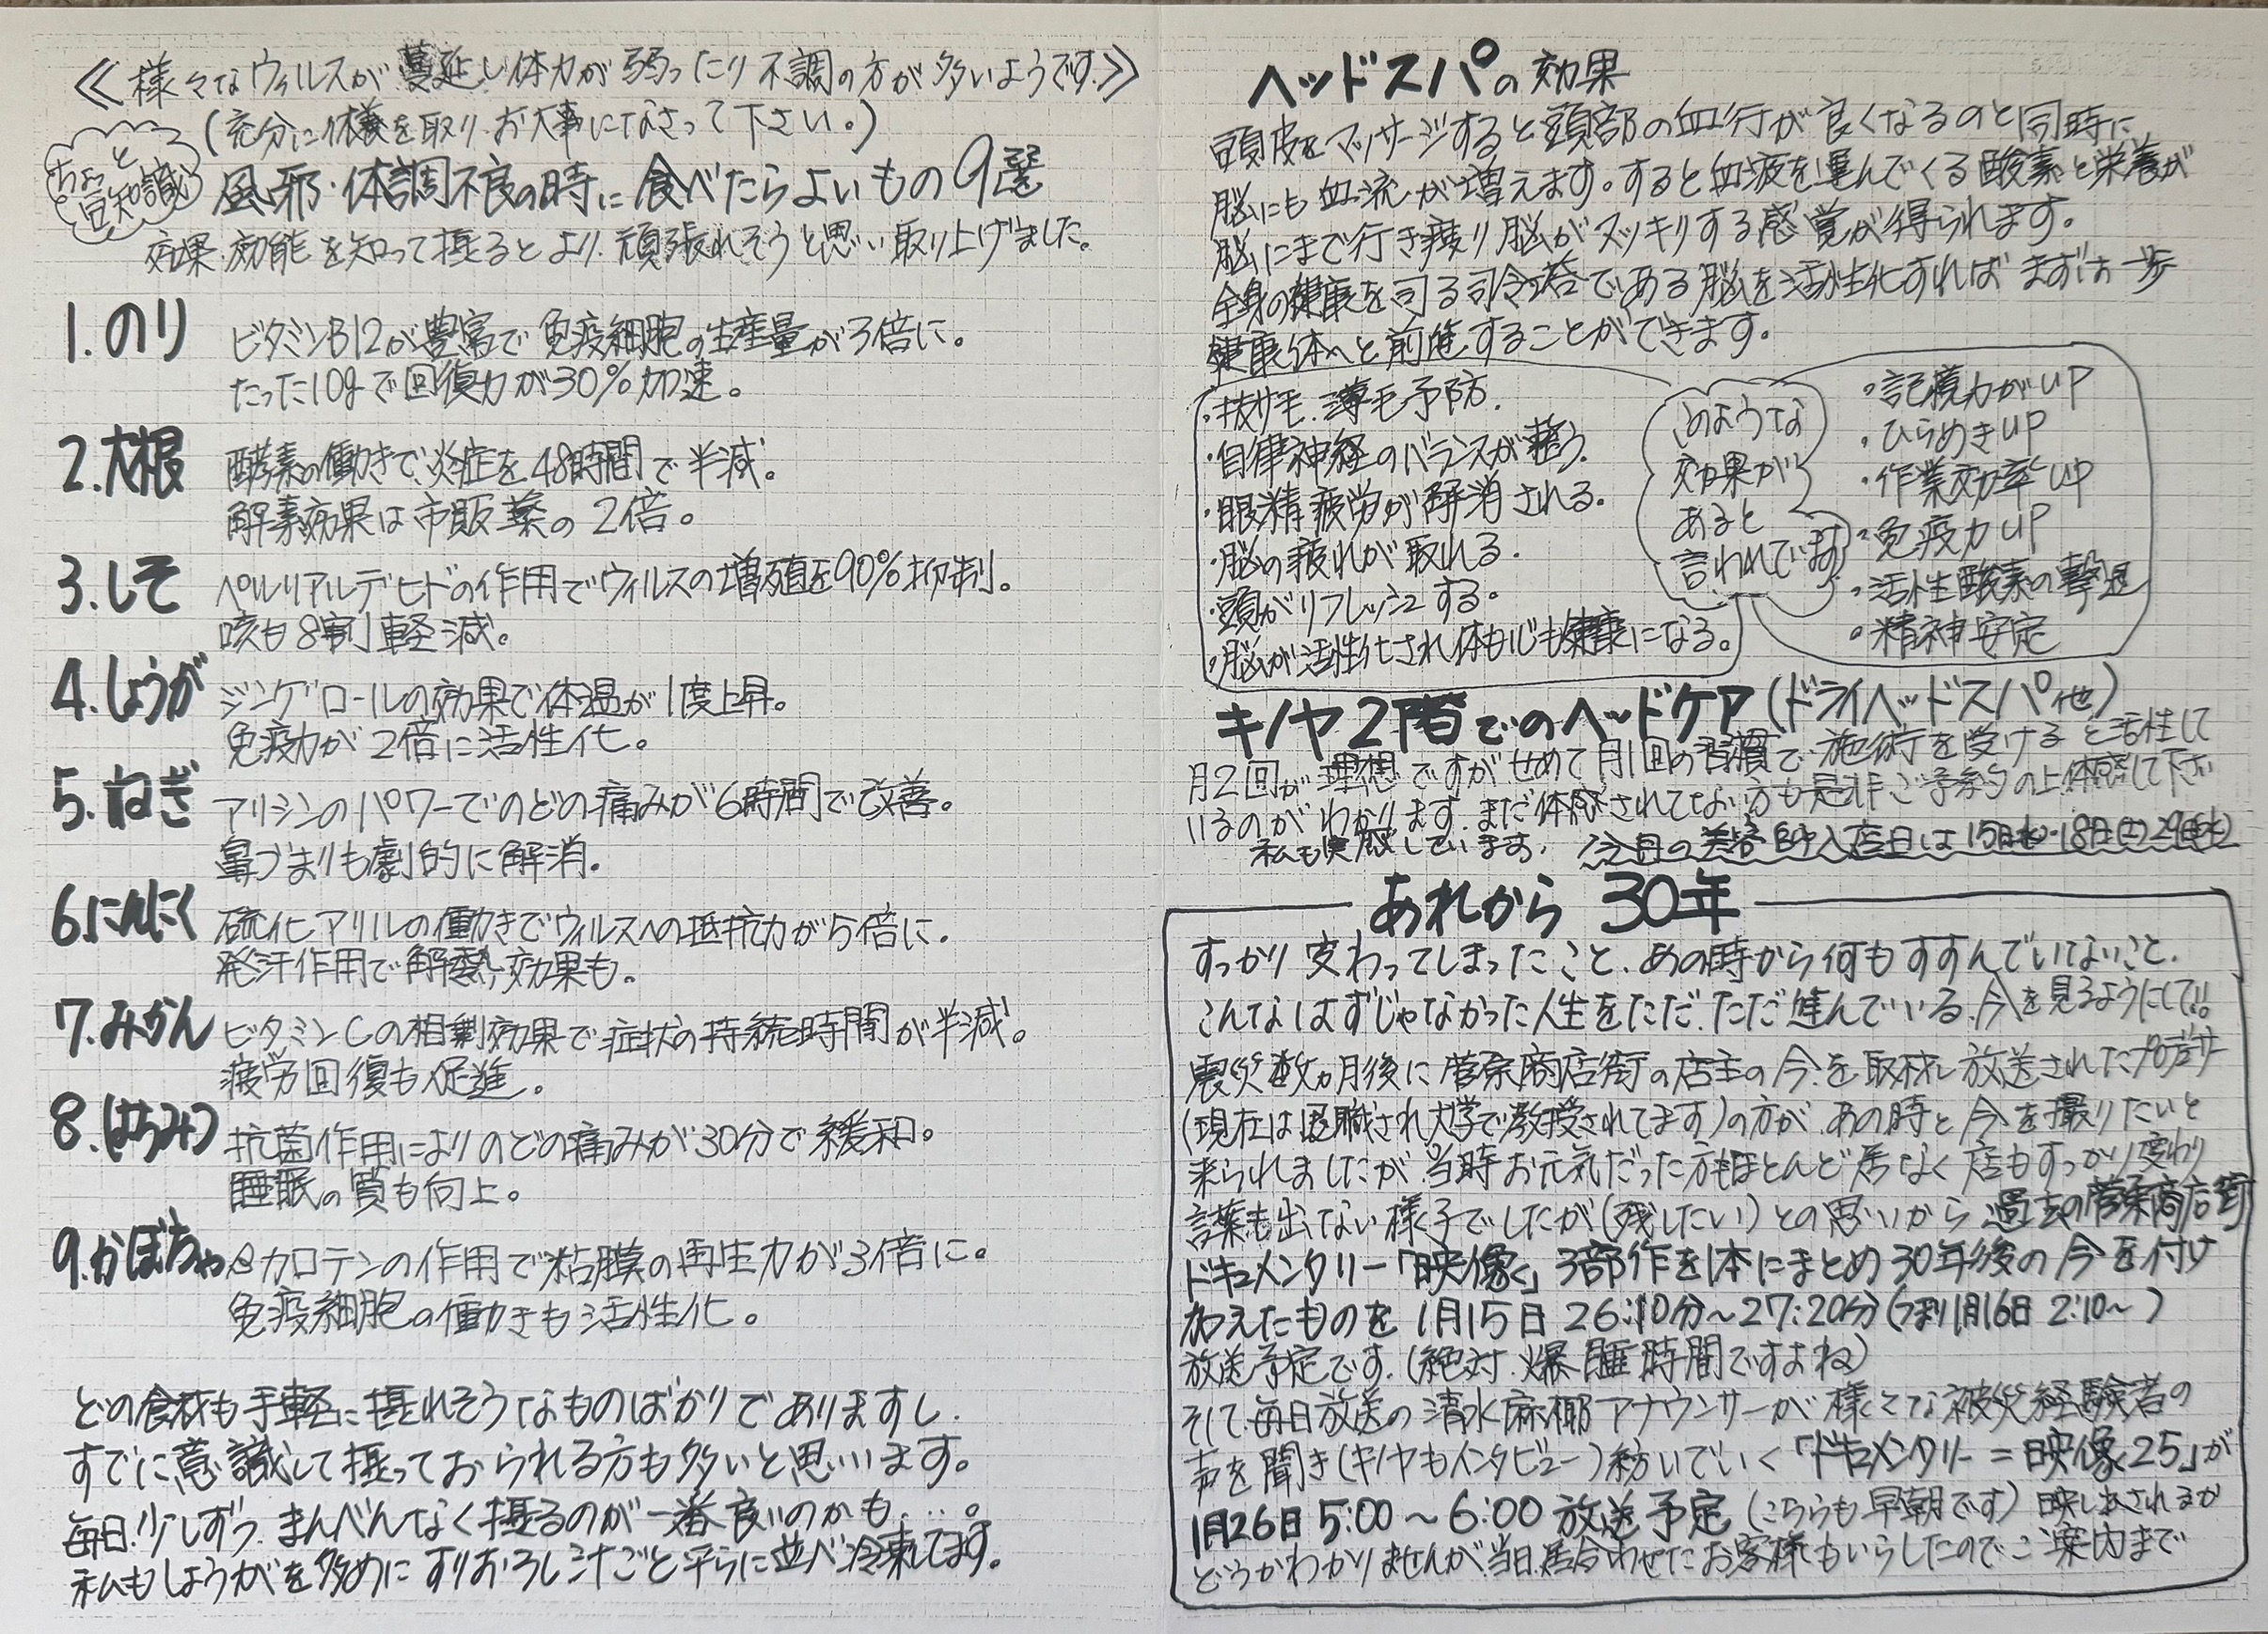 ≪様々なウィルスが蔓延し体力が弱ったり不調の方が多いようです.≫
(充分に休養を取り.お大事になさって下さい。)
ちょっと
豆知識
風邪・体調不良の時に食べたらよいもの9選
効果.効能を知って摂るとより.頑張れそうと思い取り上げました。
1.のり
ビタミンB12が豊富で免疫細胞の生産量が3倍に。
たった10gで回復力が30%加速。
2.大根
酵素の働きで、炎症を48時間で半減。
解毒効果は市販薬の2倍。
3.しそ
ペルリアルデヒドの作用でウィルスの増殖を90%抑制。
咳も8割軽減。
4.しょうが
ジンゲロールの効果で体温が1度上昇。
免疫力が2倍に活性化。
5.ねぎ
アリシンのパワーでのどの痛みが6時間で改善。
鼻づまりも劇的に解消。
6.にんにく
硫化アリルの働きでウィルスへの抵抗力が5倍に.
発汗作用で解熱効果も.
7.みかん
ビタミンCの相剰効果で症状の持続時間が半減。
疲労回復も促進.
8.はちみつ
抗菌作用によりのどの痛みが30分で緩和。
睡眠の質も向上。
9.かぼちゃ
βカロテンの作用で粘膜の再生力が3倍に。
免疫細胞の働きも活性化。
どの食材も手軽に摂れそうなものばかりでありますし.
すでに意識して摂っておられる方も多いと思います。
毎日.少しずつ.まんべんなく摂るのが一番良いのかも….。
私もしょうがを多めにすりおろし汁ごと平らに並べ冷凍してます。
ヘッドスパの効果
頭皮をマッサージすると頭部の血行が良くなるのと同時に
脳にも血流が増えます。すると血液を運んでくる酸素と栄養が
脳にまで行き渡り脳がスッキリする感覚が得られます。
全身の健康を司る司令塔である脳を活性化すればまずは一歩
健康体へと前進することができます。
・抜け毛.薄毛予防.
・自律神経のバランスが整う.
・眼精疲労が解消される.
・脳の疲れが取れる.
・頭がリフレッシュする。
・脳が活性化され体も心も健康になる。
このような
効果が
あると
言われています
・記憶力がUP
・ひらめきUP
・作業効率UP
・免疫力UP
・活性酸素の撃退
・精神安定
キノヤ2階でのヘッドケア(ドライヘッドスパ他)
月2回が理想ですがせめて月1回の習慣で施術を受けると活性して
いるのがわかります.まだ体感されてない方も是非ご予約の上体感して下さい
私も実感しています.今月の美容師入店日は15日(水)・18日(土)29日(水)
あれから30年
すっかり変わってしまったこと.あの時から何もすすんでいないこと.
こんなはずじゃなかった人生をただ.ただ進んでいる.今を見るようにして!!。
震災数ヵ月後に菅原商店街の店主の今を取材し放送されたプロデューサー
(現在は退職され大学で教授されてます)の方が.あの時と今を撮りたいと
来られましたが.当時お元気だった方もほとんど居なく店もすっかり変わり
言葉も出ない様子でしたが(残したい)との思いから過去の菅原商店街
ドキュメンタリー「映像く」3部作を1本にまとめ30年後の今を付け
加えたものを1月15日26:10分～27:20分(つまり1月16日2:10～)
放送予定です.(絶対.爆睡時間ですよね)
そして.毎日放送の清水麻椰アナウンサーが様々な被災経験者の
声を聞き(キノヤもインタビュー)紡いでいく「ドキュメンタリー=映像25」が
1月26日5:00～6:00放送予定(こちらも早朝です)映し出されるか
どうかわかりませんが.当日.居合わせたお客様もいらしたのでご案内まで